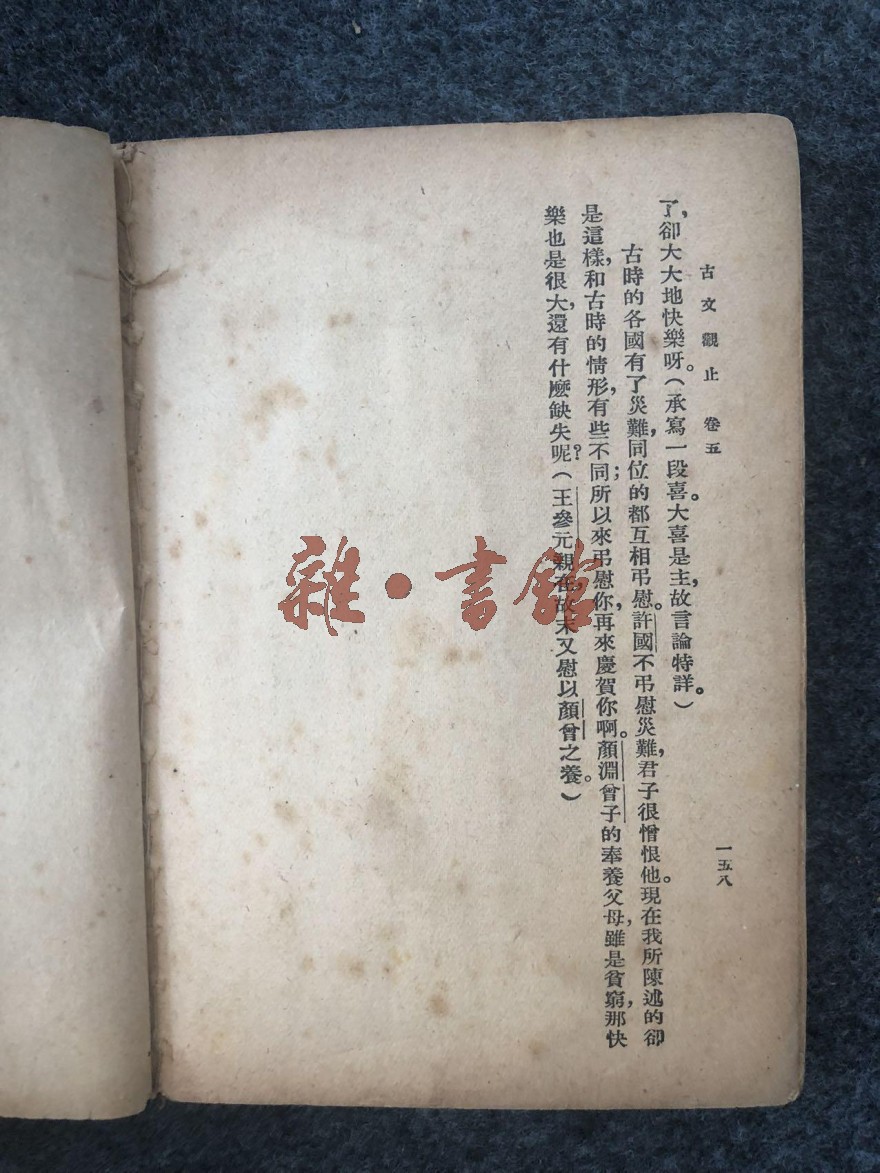 古文觀止 卷五
一五八
了，卻大大地快樂呀。（承寫一段喜。大喜是主，故言論特詳。）
古時的各國有了災難，同位的都互相弔慰。許國不弔慰災難，君子很憎恨他。現在我所陳述的卻
是這樣，和古時的情形，有些不同；所以來弔慰你，再來慶賀你啊。顏淵曾子的奉養父母，雖是貧窮，那快
樂也是很大，還有什麼缺失呢？（王參元親在，故末又慰以顏曾之養。）
雜·書館